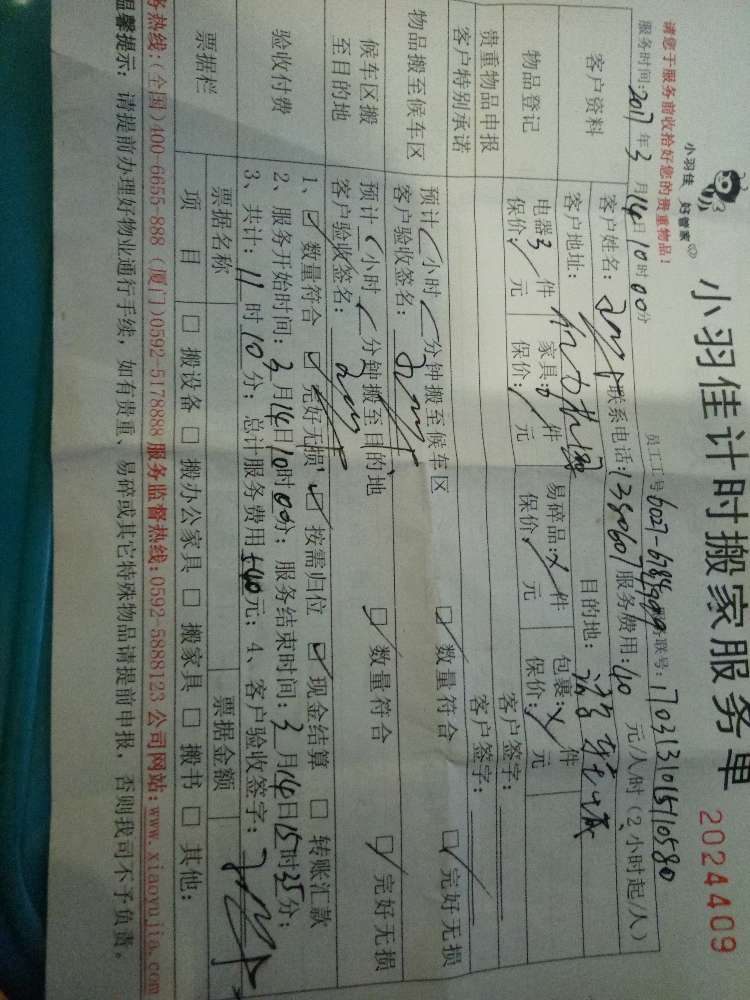 小羽佳 好管家
小羽佳计时搬家服务单 2024409
请您于服务前收拾好您的贵重物品!
服务联号:170313101510580
服务时间:2017年3月14日10时00分 员工工号
客户资料 客户姓名: 联系电话: 服务费用:40元/人/时(2小时起/人)
客户地址: 目的地:
物品登记 电器3件 家具 件 易碎品: 件 包裹: 件
保价: 元 保价: 元 保价: 元 保价: 元
贵重物品申报 客户签字:
客户特别承诺 客户签字:
物品搬至候车区 预计 小时 分钟搬至候车区 数量符合 完好无损
客户验收签名:
候车区搬至目的地 预计 小时 分钟搬至目的地 数量符合 完好无损
客户验收签名:
验收付费 1、☑数量符合 ☑完好无损 ☑按需归位 ☑现金结算 □转账汇款
2、服务开始时间:3月14日10时00分;服务结束时间:3月14日15时35分;
3、共计:11时10分;总计服务费用440元;4、客户验收签字:
票据栏 票据名称 票据金额
项目 □搬设备 □搬办公家具 □搬家具 □搬书 □其他:
务热线:(全国)400-6655-888 (厦门)0592-5178888 服务监督热线:0592-5888123 公司网站:www.xiaoyujia.com
温馨提示: 请提前办理好物业通行手续,如有贵重、易碎或其它特殊物品请提前申报,否则我司不予负责。